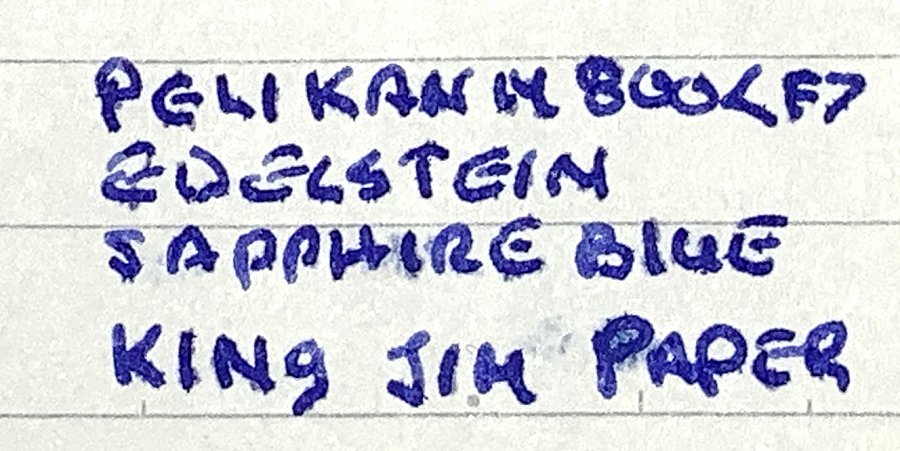 PELIKAN M800<F>
EDELSTEIN
SAPPHIRE BLUE
KING JIM PAPER